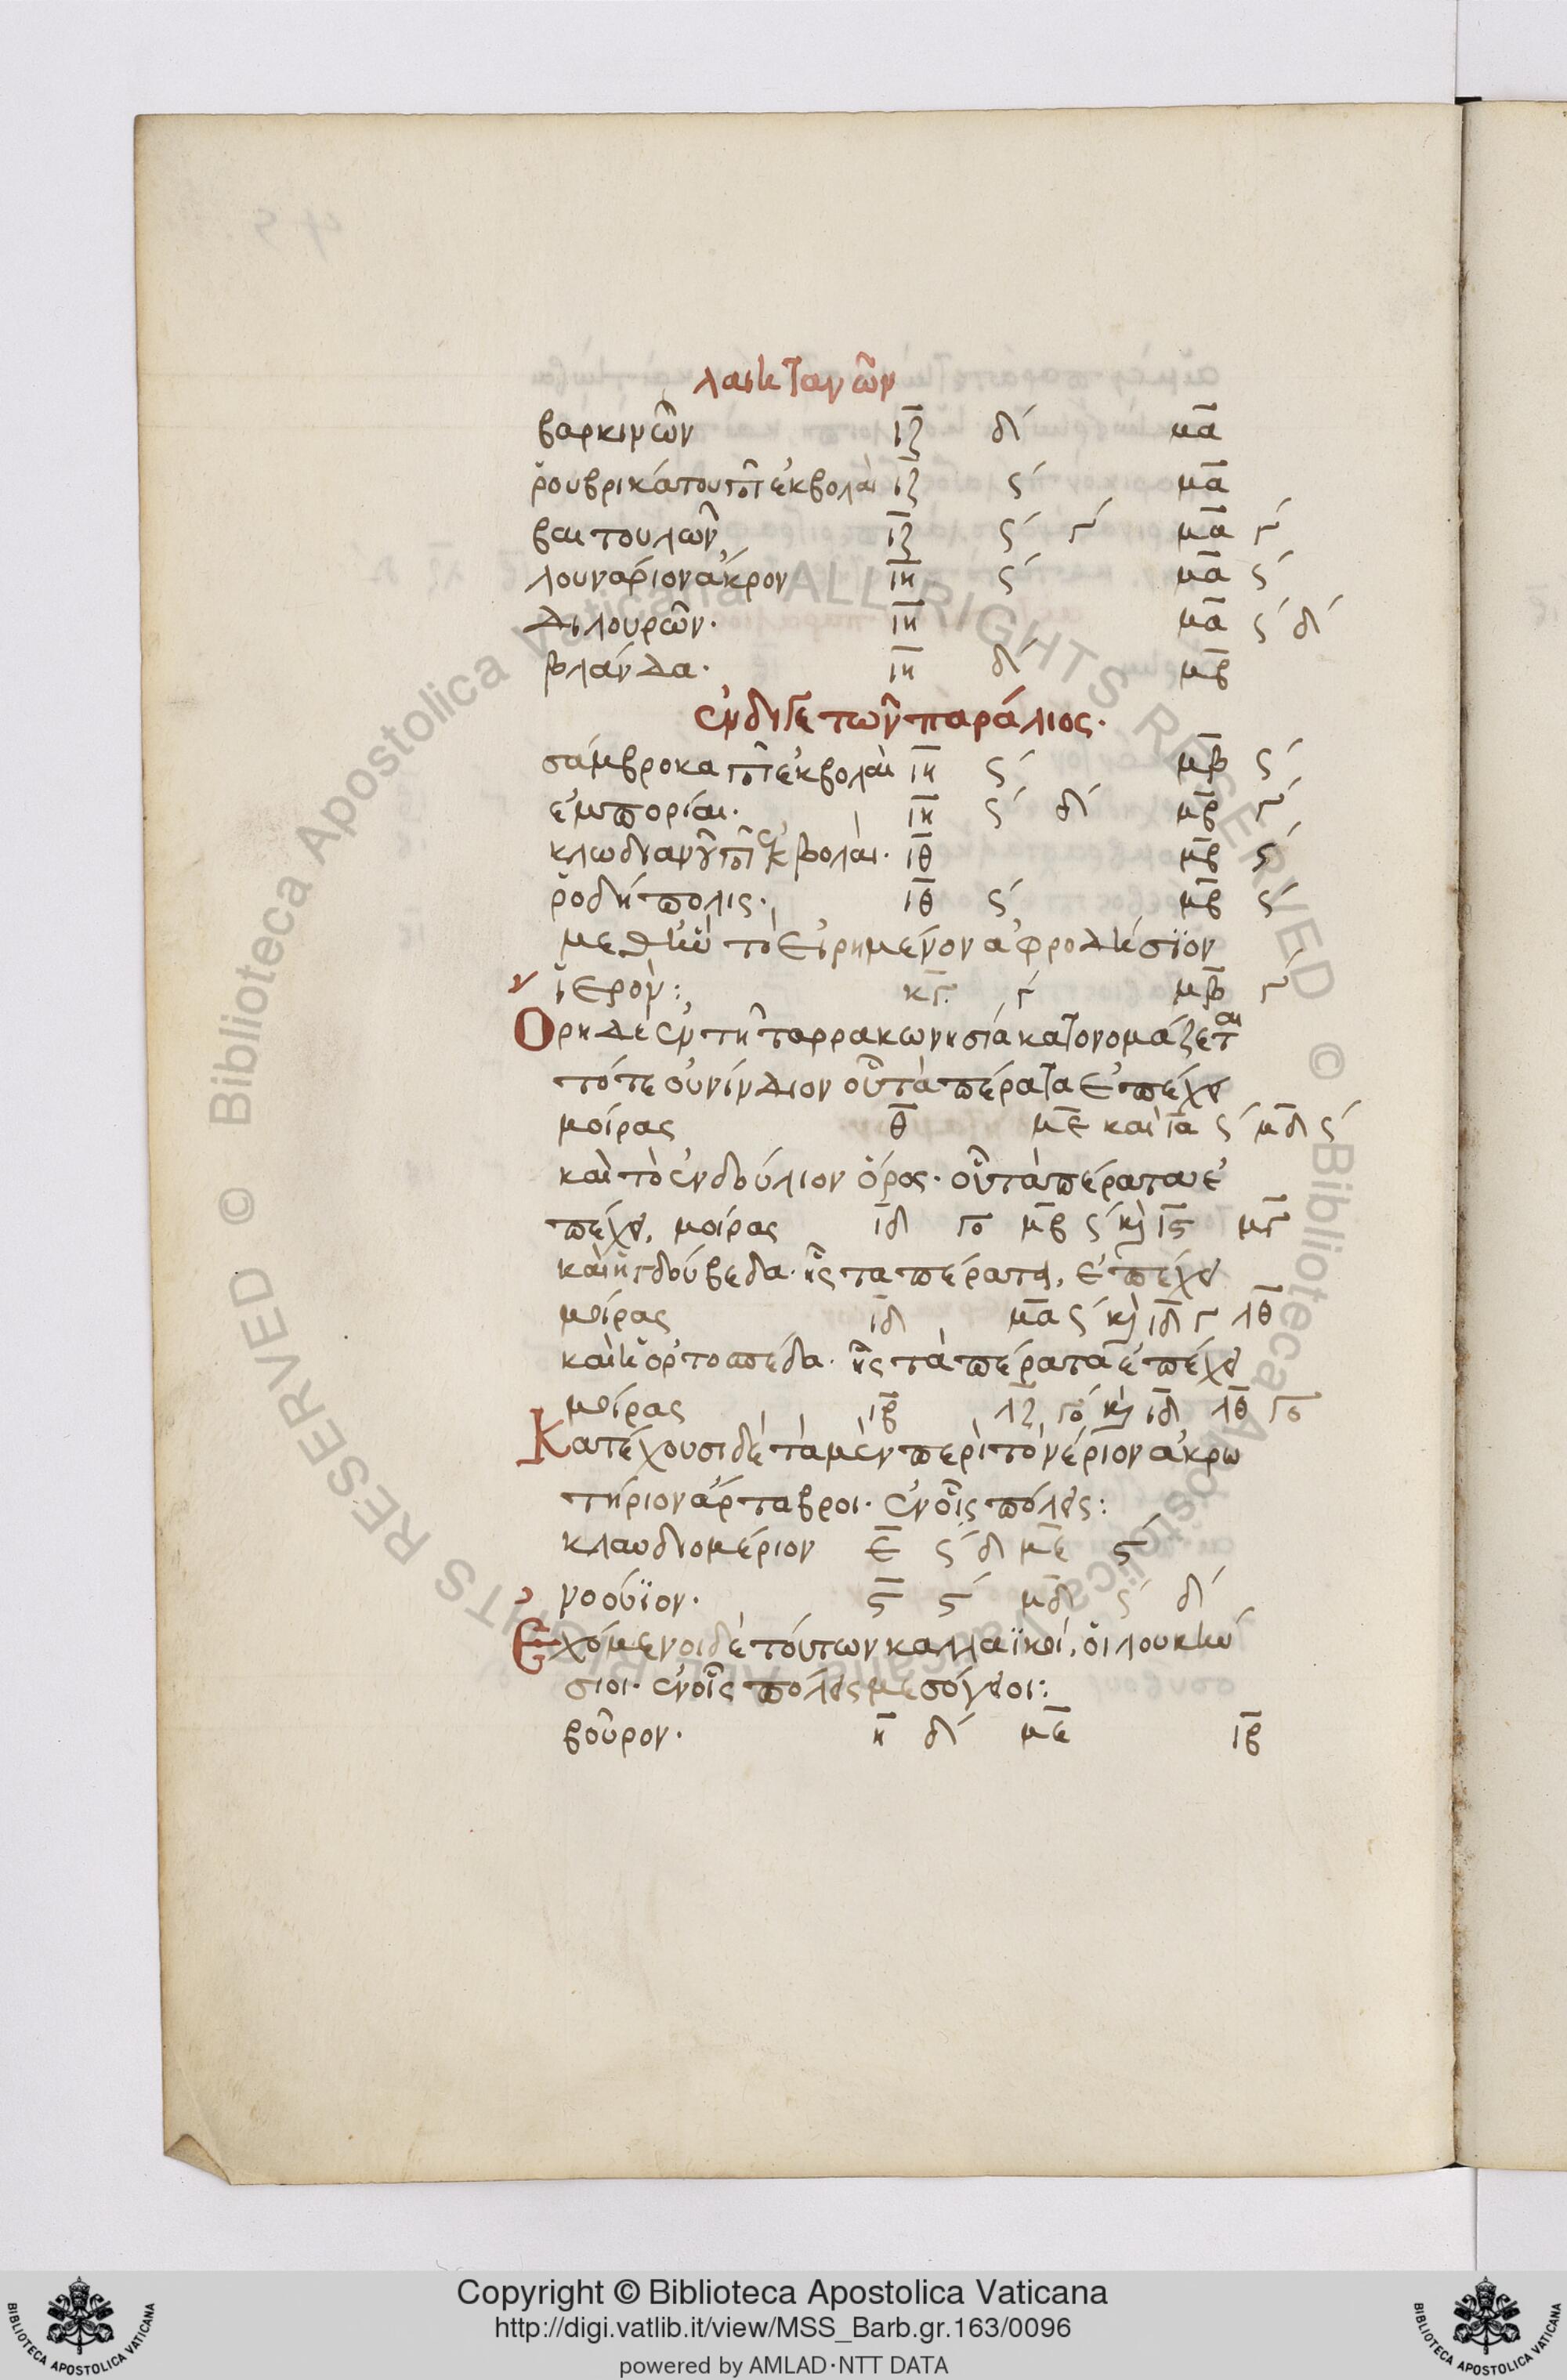 λαιητανῶν
βαρκινῶν ιζ δ΄ μα
ῥουβρικάτου ποτ ἐκβολαὶ ιζ ς΄ μα
βαιτουλῶν ιζ ς΄ γ΄ μα γ΄
λουνάριον ἄκρον ιη ς΄ μα ς΄
διλουρῶν· ιη μα ς΄ δ΄
βλάνδα· ιη δ΄ μβ
ἐνδιγετῶν παράλιος·
σάμβροκα ποτ ἐκβολαὶ ιη ς΄ μβ ς΄
ἐμπορίαι· ιη ς΄ δ΄ μβ γ΄
κλωδιανοῦ ποτ ἐκβολαὶ· ιθ μβ ς΄
ῥοδήπολις· ιθ ς΄ μβ ς΄
μεθ ἣν τὸ εἰρημένον ἀφροδίσϊον
ἱερόν: κγ γ΄ μβ γ΄
Ὄρη δὲ ἐν τῇ ταρρακωνησία κατονομάζεται
τότε οὐνίνδιον οὗ τὰ πέρατα ἐπέχει
μοίρας θ με καὶ ια ς΄ μδ ς΄
καὶ τὸ ἐνδούλιον ὄρος· οὗ τὰ πέρατα ἐ
πέχει, μοίρας ιδ γο μβ ς΄ κὶ ις μγ
καὶ ἡ ιδούβεδα· ἧς τα πέρατα, ἐπέχει
μοίρας ιδ μα ς΄ κὶ ιδ γ λθ
καὶ ἡ ὀρτοσπέδα· ἧς τὰ πέρατα ἐπέχει
μοίρας ιβ λζ γο΄ κὶ ιδ λθ γο
Κατέχουσι δὲ τὰ μὲν περὶ τὸ νέριον ἀκρω
τήριον ἄρταβροι· ἐν οἷς πόλεις:
κλαυδιομέριον ε ς΄ δ με ς΄
νοούϊον· ς ς΄ μδ ς΄ δ΄
Ἐχόμενοι δὲ τούτων καλλαϊκοί, οἱ λουκην
σιοι· ἐν οἷς πόλεις μεσόγειοι:
βοῦρον· η δ΄ με ιβ
Copyright © Biblioteca Apostolica Vaticana
http://digi.vatlib.it/view/MSS_Barb.gr.163/0096
powered by AMLAD·NTT DATA